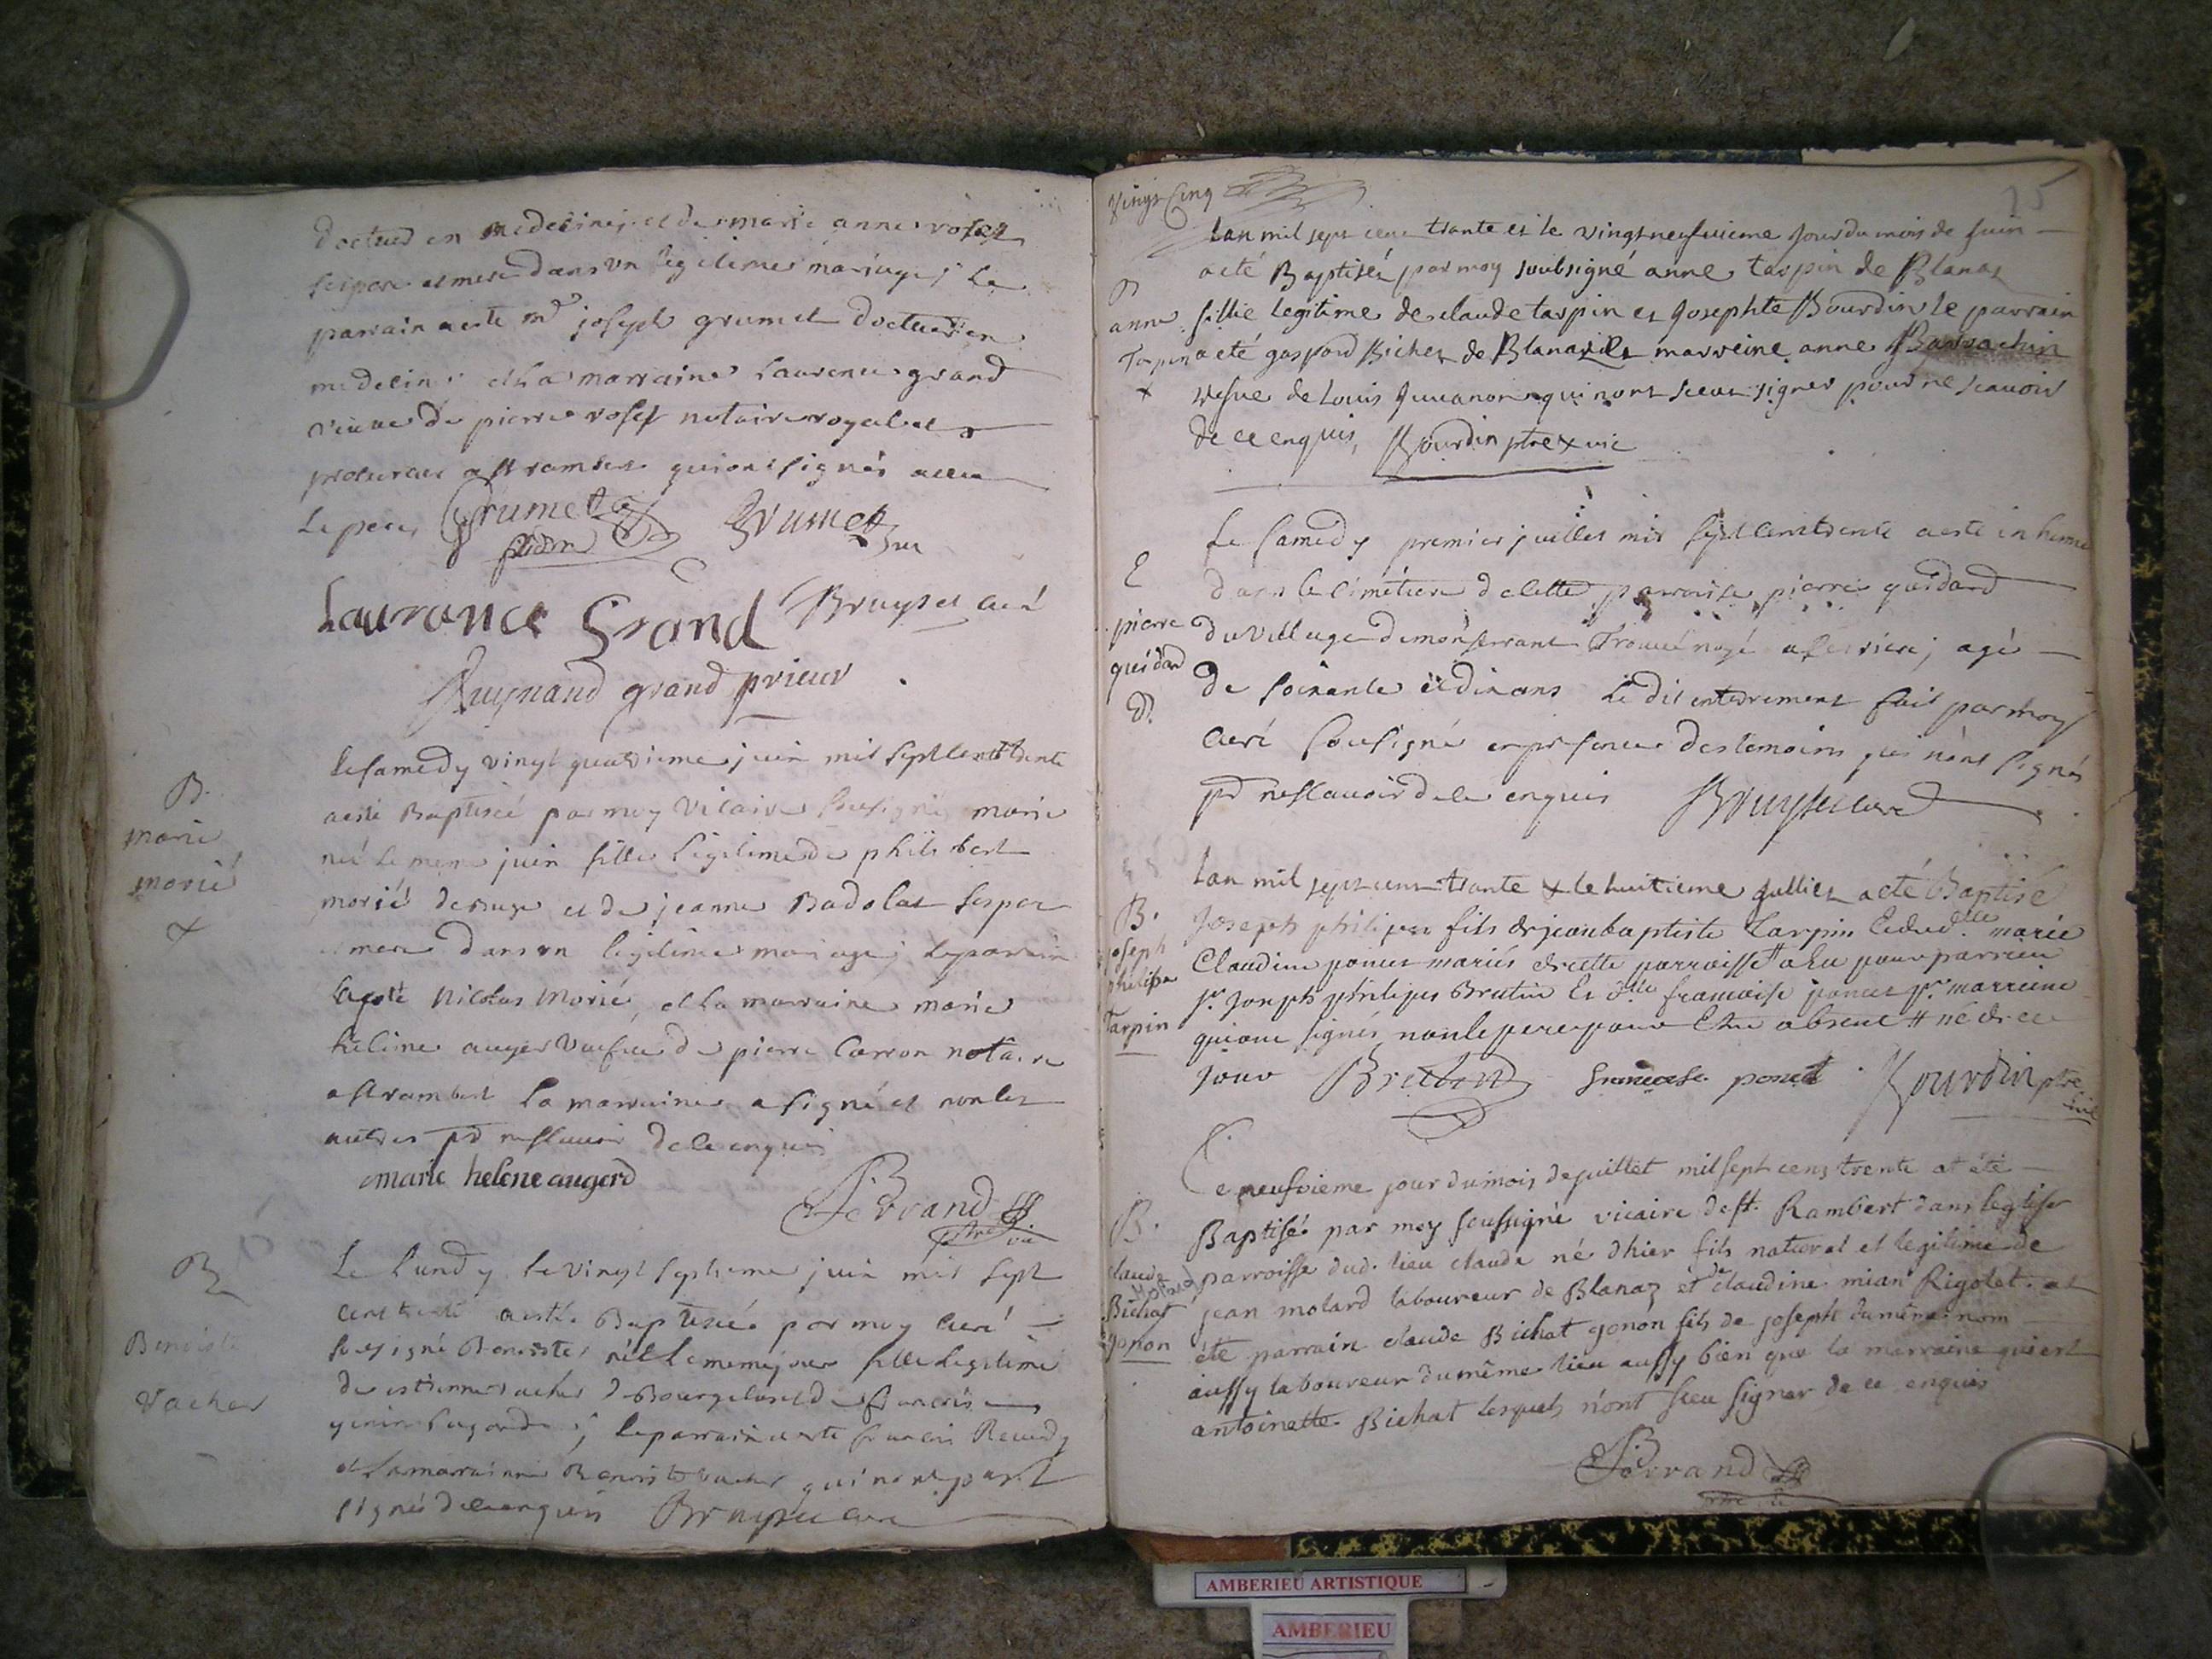 docteur en medecine, et de marie anne rosset
ses pere et mere dans un legitime mariage; Le
parrain a esté mr joseph grumet docteur en
medecine et la marraine Laurence grand
veuve de pierre rosset notaire royal et
procureur a st rambert qui ont signés avec
Le pere, Grumet Grumet
Laurance Grand Bruyset curé
grand prieur
B.
marie
morié
Le samedy vingt quatrieme juin mil sept cent trente
a esté Baptisée par moy Vicaire sousigné marie
née le meme juin fille Legitime de philibert
morié et de jeanne Badolat ses pere
et mere dans un legitime mariage; le parrain
a esté Nicolas Morié, et La marraine marie
helene auger veufve de pierre Carron notaire
a st rambert La marraine a signé et non les
autres pr ne sçavoir de ce enquis
marie helene augerd
Ferrand ptre vic
B
Benoiste
Vacher
Le Lundy le vingt septieme juin mil sept
cent trente a esté Baptisée par moy curé
sousigné Benoiste née Le meme jour fille Legitime
de estienne vacher de
; le parrain a esté françois
et La marraine Benoiste vacher qui n'ont point
signés de ce enquis Bruyset curé
Vingt Cinq
25
Lan mil sept cent trante et le vingt neufvieme jour du mois de juin
a été Baptisée par moy soubsigné anne tarpin de Blanaz
B
anne
Tarpin
fillie legitime de claude tarpin et Josephte Bourdin le parrain
a eté gaspard Bichet de Blanaz et marreine anne Barrachin
vefve de Louis Juvanon qui n'ont sceut signer pour ne scavoir
de ce enquis, Bourdin ptre & vic
E
pierre
guidard
Le samedy premier juillet mil sept cent trente a esté inhumé
dans le cimetiere de cette parroisse pierre guidard
du village de monferrant Trouvé noyé a la riviere, agé
de soixante et dix ans Le dit enterrement fait par moy
curé sousigné en presence des temoins qui n'ont signés
pr ne scavoir de ce enquis Bruyset curé
B.
joseph
philipe
Tarpin
Lan mil sept cent trante & le huitieme Julliet a eté Baptisé
Joseph philipe fils de jean baptiste Tarpin Et de dlle marie
Claudine poncet mariés de cette parroisse # a eu pour parrein
Sr Joseph philipes Brutin Et dlle francoise poncet pr marreine
qui ont signés non le pere pour Etre absent # né de ce
jour francoise poncet Bourdin ptre vic
B.
claude
Molard
Bichat
gonon
Le neufvieme jour du mois de juillet mil sept cens trente at été
Baptisé par moy soussigné vicaire de st. Rambert dans leglise
parroisse dud. lieu claude né d'hier fils naturel et legitime de
jean molard laboureur de Blanaz et de claudine mian Rigolet. at
été parrain claude Bichat gonon fils de joseph du même nom
aussy laboureur du même lieu aussy bien que la marraine qui est
antoinette Bichat lesquels n'ont sceu signer de ce enquis
Ferrand
AMBERIEU ARTISTIQUE
AMBERIEU